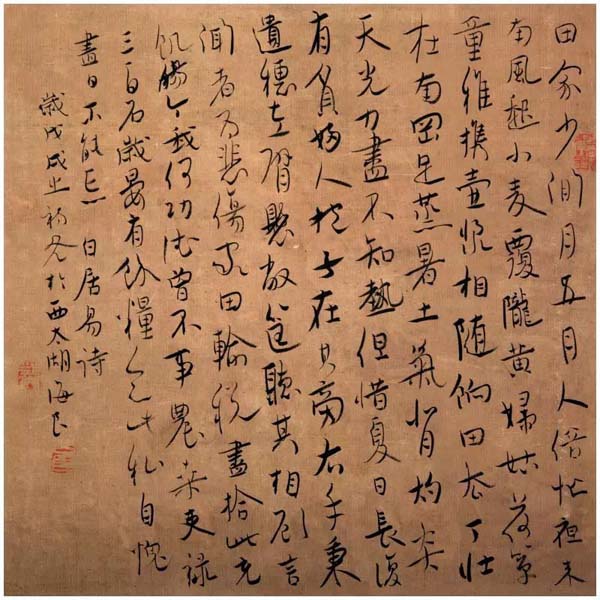 田家少閒月五月人倍忙夜来
南風起小麦覆隴黄婦姑荷箪
童稚携壺漿相随餉田去丁壮
在南岡足蒸暑土氣背灼炎
天光力盡不知熱但惜夏日長復
有貧婦人抱子在其旁右手秉
遺穗左臂懸敝筐聽其相顧言
聞者为悲傷家田輸税盡拾此充
飢腸今我何功德曾不事農桑吏禄
三百石歳晏有餘糧念此私自愧
盡日不能忘 白居易詩
歳戊戌之初冬於西太湖海